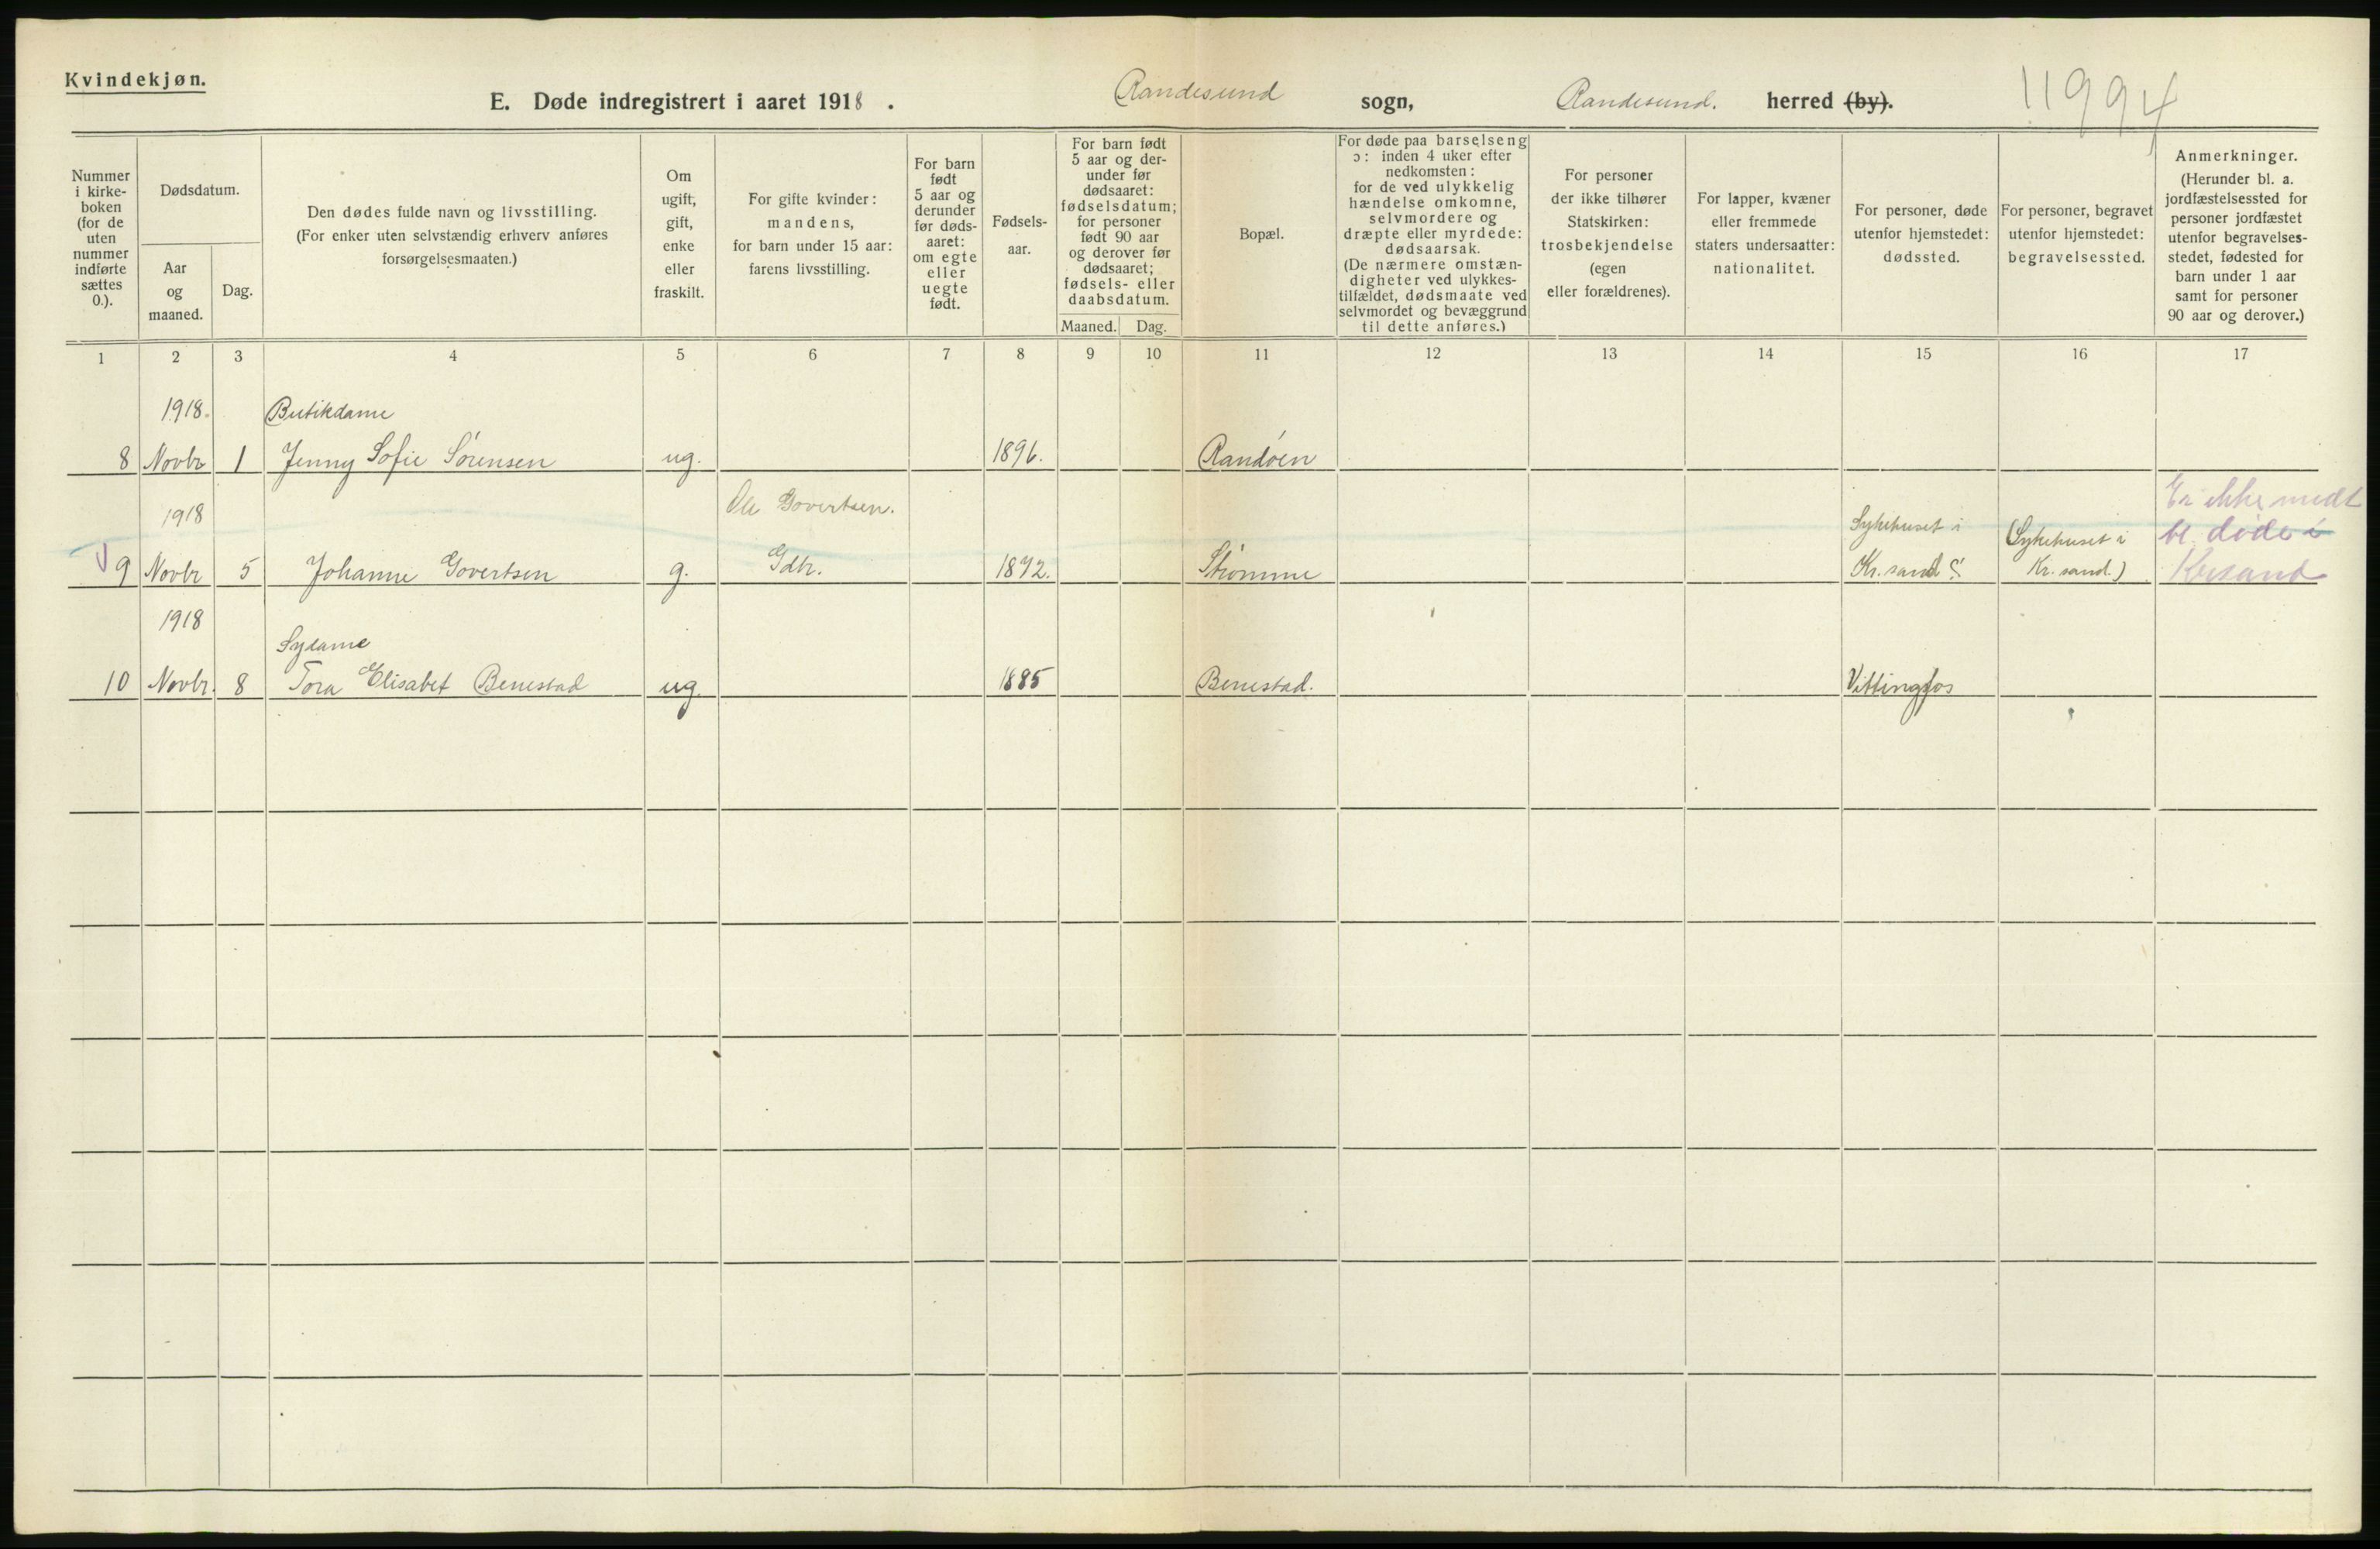 Kvindekjøn.
E. Døde indregistrert i aaret 1918 . Randesund sogn, Randesund. herred (by). 11994
Nummer
i kirke-
boken
(for de
uten
nummer
indførte
sættes
0.).
Dødsdatum.
Aar
og
maaned.
Dag.
Den dødes fulde navn og livsstilling.
(For enker uten selvstændig erhverv anføres
forsørgelsesmaaten.)
Om
ugift,
gift,
enke
eller
fraskilt.
For gifte kvinder:
mandens,
for barn under 15 aar:
farens livsstilling.
For barn
født
5 aar og
derunder
før døds-
aaret:
om egte
eller
uegte
født.
Fødsels-
aar.
For barn født
5 aar og der-
under før
dødsaaret:
fødselsdatum;
for personer
født 90 aar
og derover før
dødsaaret;
fødsels- eller
daabsdatum.
Maaned. Dag.
Bopæl.
For døde paa barselseng
ɔ: inden 4 uker efter
nedkomsten:
for de ved ulykkelig
hændelse omkomne,
selvmordere og
dræpte eller myrdede:
dødsaarsak.
(De nærmere omstæn-
digheter ved ulykkes-
tilfældet, dødsmaate ved
selvmordet og bevæggrund
til dette anføres.)
For personer
der ikke tilhører
Statskirken:
trosbekjendelse
(egen
eller forældrenes).
For lapper, kvæner
eller fremmede
staters undersaatter:
nationalitet.
For personer, døde
utenfor hjemstedet:
dødssted.
For personer, begravet
utenfor hjemstedet:
begravelsessted.
Anmerkninger.
(Herunder bl. a.
jordfæstelsessted for
personer jordfæstet
utenfor begravelses-
stedet, fødested for
barn under 1 aar
samt for personer
90 aar og derover.)
1 2 3 4 5 6 7 8 9 10 11 12 13 14 15 16 17
1918. Butikdame
8 Novbr 1 Jenny Sofie Sörensen ug. 1896. Randöen
1918 Ole Govertsen. Sykehuset i (Sykehuset i Er ikke medt
bl. döde i
9 Novbr 5 Johanne Govertsen g. Gdbr. 1892. Strömme Kr. sand S. Kr. sand.) Krsand
1918
Sydame
10 Novbr. 8 Tora Elisabet Benestad ug. 1885 Benestad. Vittingfos